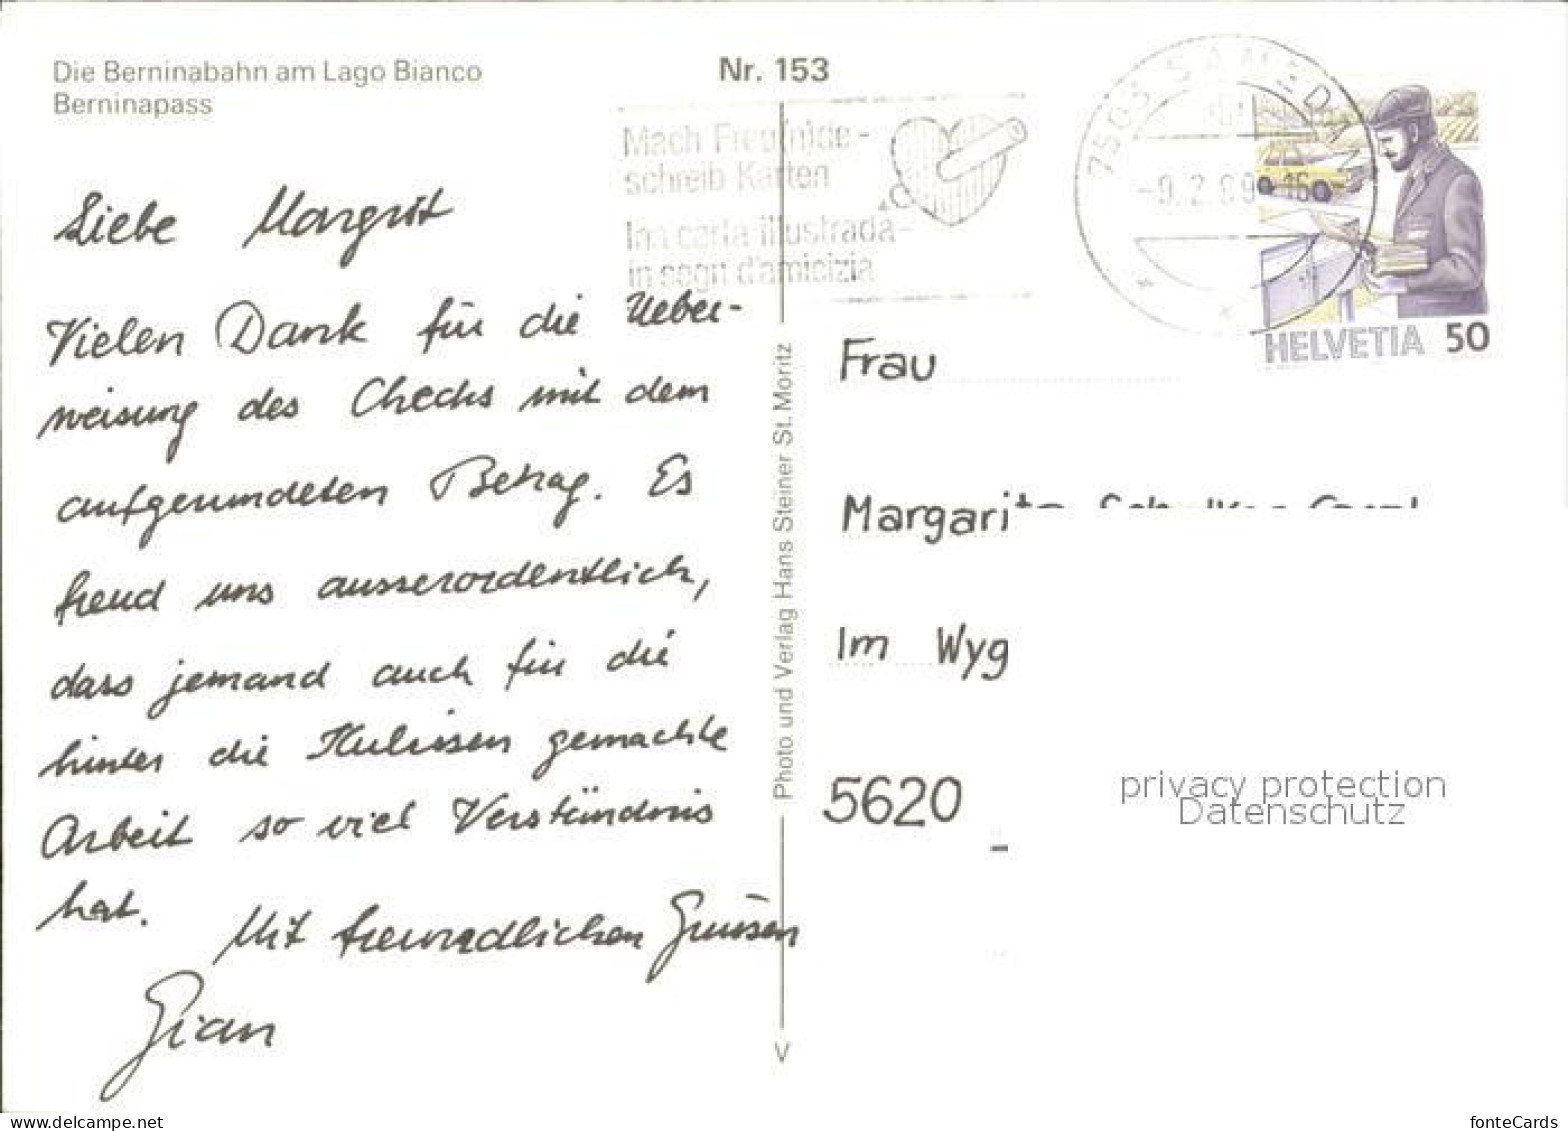 Die Berninabahn am Lago Bianco
Berninapass
Nr. 153
Mach Freu(n)de -
schreib Karten
Ina carta illustrada -
in segn d'amicizia
7503 SAMEDAN
-9.2.89 - 16
HELVETIA 50
Liebe Margrit
Vielen Dank für die Ueber-
weisung des Checks mit dem
aufgerundeten Betrag. Es
freud uns ausserordentlich,
dass jemand auch für die
hinter die Kulissen gemachte
Arbeit so viel Verständnis
hat.
Mit freundlichen Grüssen
Gian
Photo und Verlag Hans Steiner St. Moritz
V
Frau
Margarita
Im Wyg
5620
privacy protection
Datenschutz
www.delcampe.net
fonteCards